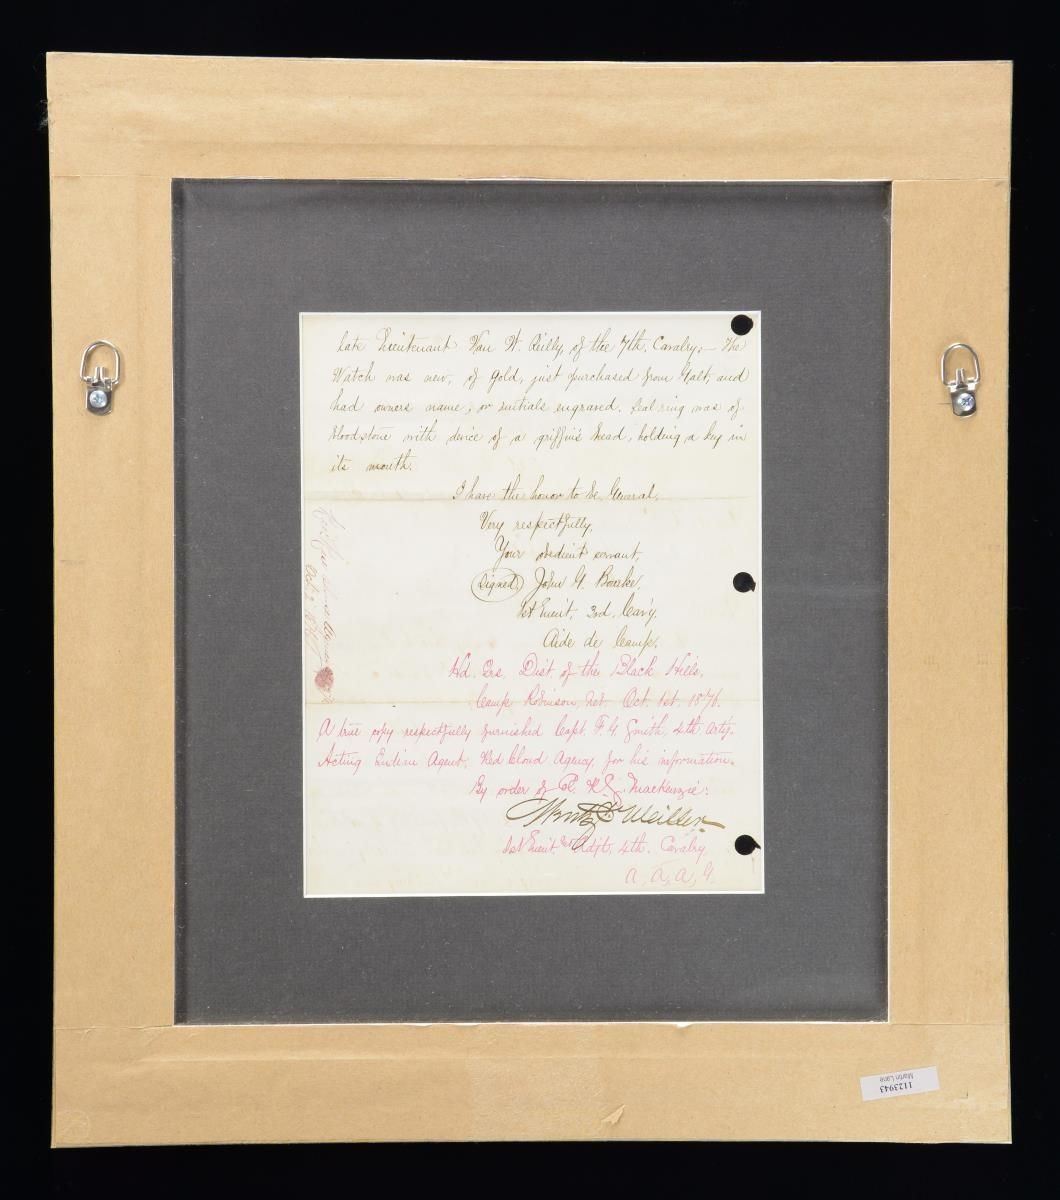 late Lieutenant Van W. Reilly, of the 7th. Cavalry.— The
Watch was new, of gold, just purchased from Galt, and
had owners name, or initials engraved. Seal ring was of
bloodstone with device of a griffin's head, holding a key in
its mouth.
I have the honor to be, General,
Very respectfully,
Your obedient servant,
(Signed) John G. Bourke,
1st Lieut. 3rd. Cav'y.
Aide de Camp.
Hd. Qrs. Dist. of the Black Hills,
Camp Robinson, Neb. Oct. 1st. 1876.
A true copy respectfully furnished Capt. F. G. Smith, 4th. Arty.
Acting Indian Agent, Red Cloud Agency, for his information.
By order of Col. R. S. Mackenzie:
1st Lieut. & Adjt. 4th. Cavalry
A. A. A. G.
Red Cloud Agency
Oct
1123943
Martin Lane